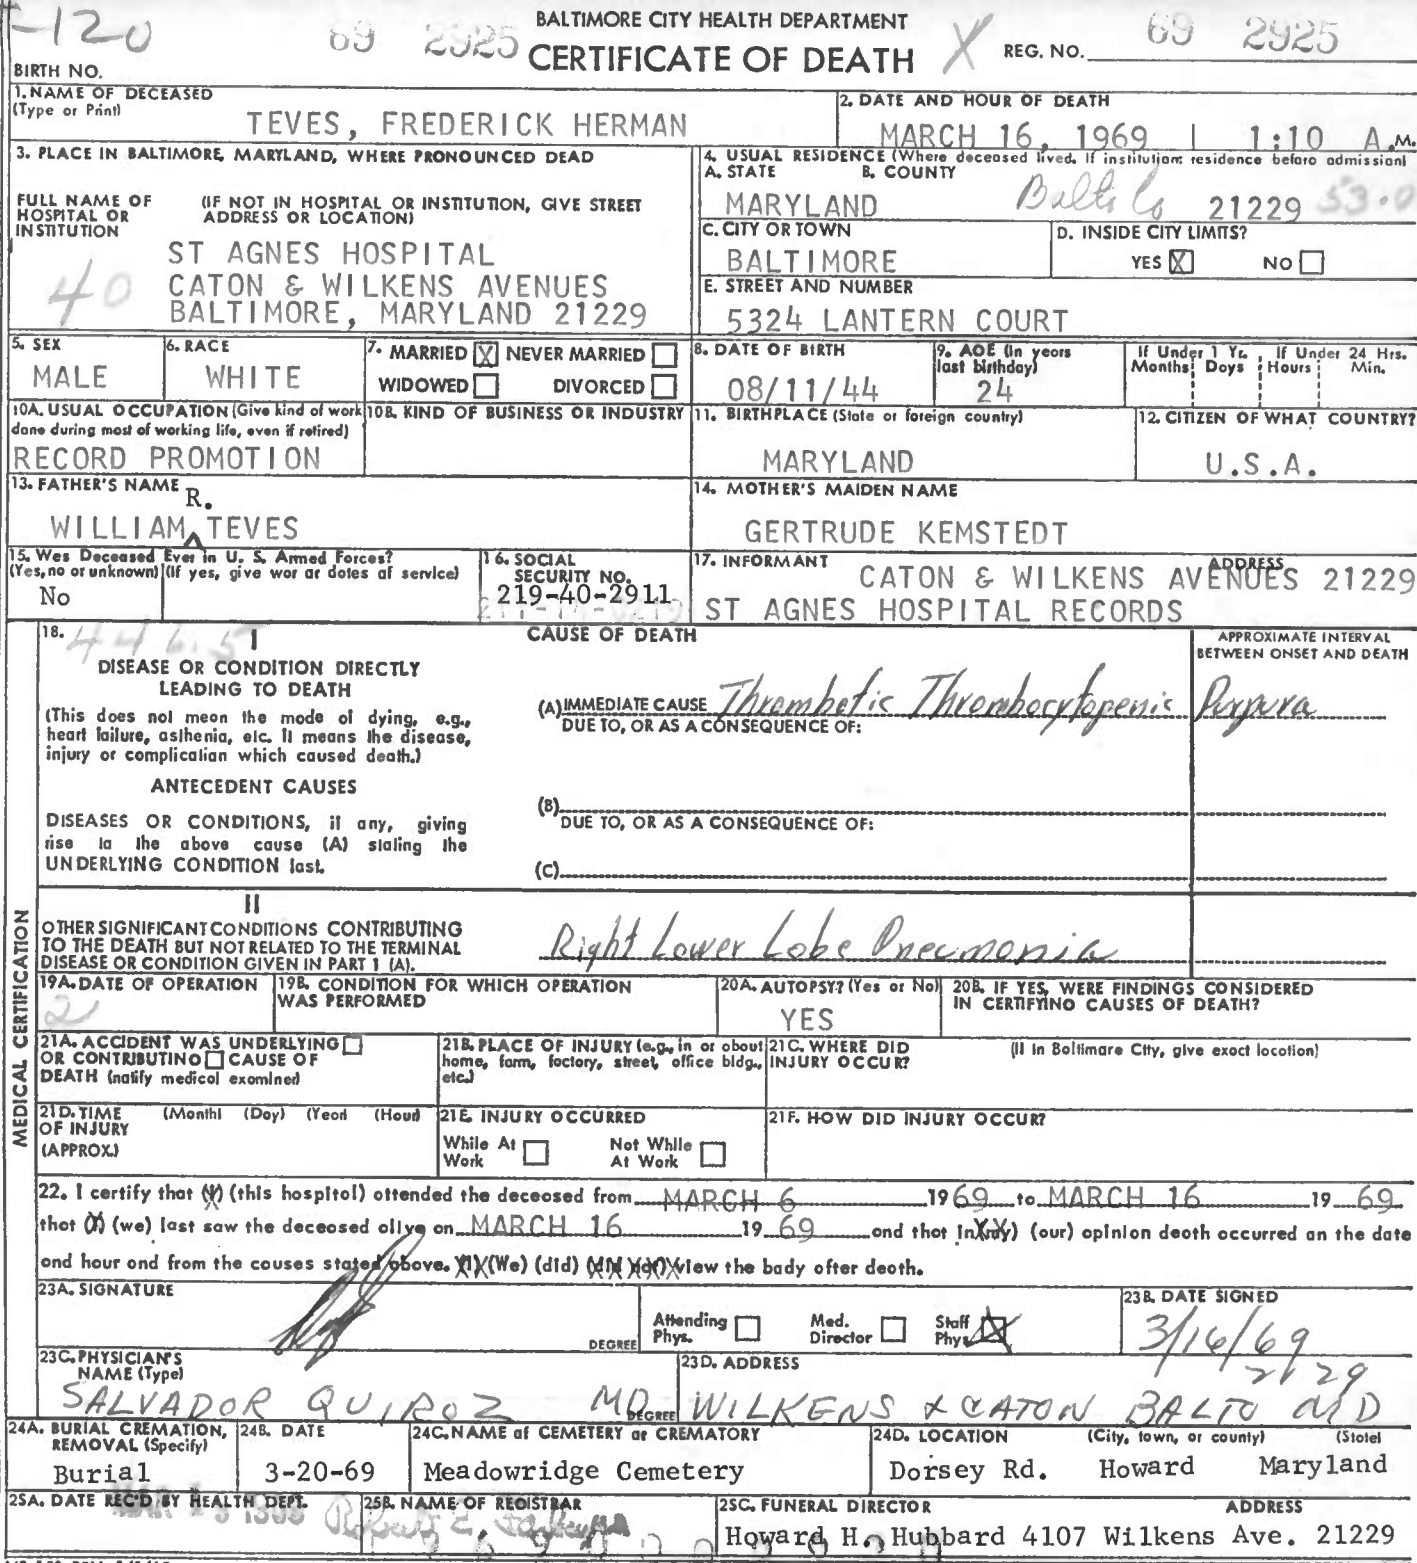 -120
69 2925
BALTIMORE CITY HEALTH DEPARTMENT
CERTIFICATE OF DEATH
X
REG. NO. 69 2925
BIRTH NO.
1. NAME OF DECEASED
(Type or Print)
TEVES, FREDERICK HERMAN
2. DATE AND HOUR OF DEATH
MARCH 16, 1969 | 1:10 A.M.
3. PLACE IN BALTIMORE, MARYLAND, WHERE PRONOUNCED DEAD
FULL NAME OF HOSPITAL OR INSTITUTION
(IF NOT IN HOSPITAL OR INSTITUTION, GIVE STREET ADDRESS OR LOCATION)
40
ST AGNES HOSPITAL
CATON & WILKENS AVENUES
BALTIMORE, MARYLAND 21229
4. USUAL RESIDENCE (Where deceased lived. If institution: residence before admission)
A. STATE B. COUNTY
MARYLAND Balto Co 21229 53.0
C. CITY OR TOWN
BALTIMORE
D. INSIDE CITY LIMITS?
YES X NO
E. STREET AND NUMBER
5324 LANTERN COURT
5. SEX
MALE
6. RACE
WHITE
7. MARRIED X NEVER MARRIED
WIDOWED DIVORCED
8. DATE OF BIRTH
08/11/44
9. AGE (In years last birthday)
24
If Under 1 Yr. If Under 24 Hrs.
Months Days Hours Min.
10A. USUAL OCCUPATION (Give kind of work done during most of working life, even if retired)
RECORD PROMOTION
10B. KIND OF BUSINESS OR INDUSTRY
11. BIRTHPLACE (State or foreign country)
MARYLAND
12. CITIZEN OF WHAT COUNTRY?
U.S.A.
13. FATHER'S NAME
R.
WILLIAM TEVES
14. MOTHER'S MAIDEN NAME
GERTRUDE KEMSTEDT
15. Was Deceased Ever in U. S. Armed Forces?
(Yes, no or unknown) (If yes, give war or dates of service)
No
16. SOCIAL SECURITY NO.
219-40-2911
17. INFORMANT ADDRESS
CATON & WILKENS AVENUES 21229
ST AGNES HOSPITAL RECORDS
MEDICAL CERTIFICATION
18. 446.5
I
DISEASE OR CONDITION DIRECTLY LEADING TO DEATH
(This does not mean the mode of dying, e.g., heart failure, asthenia, etc. It means the disease, injury or complication which caused death.)
ANTECEDENT CAUSES
DISEASES OR CONDITIONS, if any, giving rise to the above cause (A) stating the UNDERLYING CONDITION last.
CAUSE OF DEATH
APPROXIMATE INTERVAL BETWEEN ONSET AND DEATH
(A) IMMEDIATE CAUSE Thrombotic Thrombocytopenic Purpura
DUE TO, OR AS A CONSEQUENCE OF:
(B)
DUE TO, OR AS A CONSEQUENCE OF:
(C)
II
OTHER SIGNIFICANT CONDITIONS CONTRIBUTING TO THE DEATH BUT NOT RELATED TO THE TERMINAL DISEASE OR CONDITION GIVEN IN PART 1 (A).
Right Lower Lobe Pneumonia
19A. DATE OF OPERATION
2
19B. CONDITION FOR WHICH OPERATION WAS PERFORMED
20A. AUTOPSY? (Yes or No)
YES
20B. IF YES, WERE FINDINGS CONSIDERED IN CERTIFYING CAUSES OF DEATH?
21A. ACCIDENT WAS UNDERLYING OR CONTRIBUTING CAUSE OF DEATH (notify medical examiner)
21B. PLACE OF INJURY (e.g., in or about home, farm, factory, street, office bldg., etc.)
21C. WHERE DID INJURY OCCUR?
(If in Baltimore City, give exact location)
21D. TIME OF INJURY (APPROX.)
(Month) (Day) (Year) (Hour)
21E. INJURY OCCURRED
While At Work Not While At Work
21F. HOW DID INJURY OCCUR?
22. I certify that (I) (this hospital) attended the deceased from MARCH 6 1969 to MARCH 16 1969
that (I) (we) last saw the deceased alive on MARCH 16 1969 and that in (my) (our) opinion death occurred on the date
and hour and from the causes stated above. (I) (We) (did) (did not) view the body after death.
23A. SIGNATURE
DEGREE
Attending Phys. Med. Director Staff Phys. X
23B. DATE SIGNED
3/16/69
23C. PHYSICIAN'S NAME (Type)
SALVADOR QUIROZ MD
DEGREE
23D. ADDRESS
21229
WILKENS & CATON BALTO MD
24A. BURIAL CREMATION, REMOVAL (Specify)
Burial
24B. DATE
3-20-69
24C. NAME of CEMETERY or CREMATORY
Meadowridge Cemetery
24D. LOCATION (City, town, or county) (State)
Dorsey Rd. Howard Maryland
25A. DATE REC'D BY HEALTH DEPT.
25B. NAME OF REGISTRAR
25C. FUNERAL DIRECTOR ADDRESS
Howard H. Hubbard 4107 Wilkens Ave. 21229